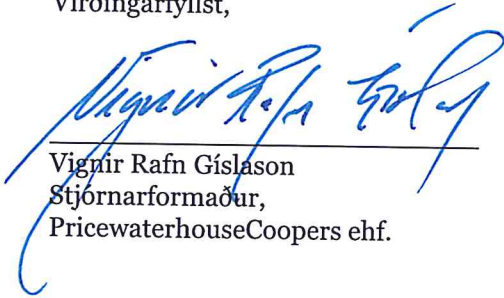 Virðingarfyllst,
Vignir Rafn Gísla
Vignir Rafn Gíslason
Stjórnarformaður,
PricewaterhouseCoopers ehf.